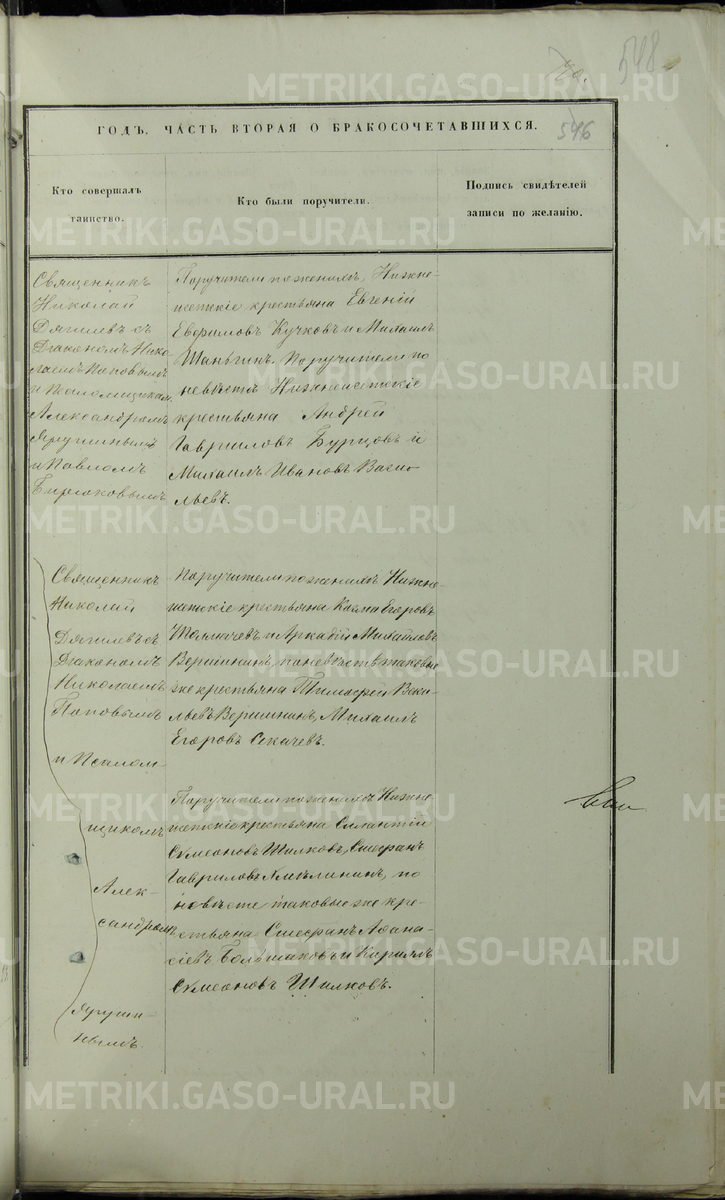 548
546
ГОДЪ. ЧАСТЬ ВТОРАЯ О БРАКОСОЧЕТАВШИХСЯ.
Кто совершалъ
таинство.
Кто были поручители.
Подпись свидѣтелей
записи по желанію.
Священникъ
Николай
Дягилевъ съ
Діакономъ Нико-
лаемъ Поповымъ
и Псаломщиками
Александромъ
Яругинымъ
и Павломъ
Бирюковымъ
Поручители по женихѣ Нижне-
исетскіе крестьяна Евгеній
Евфимовъ Кучковъ и Михаилъ
Шаньгинъ. Поручители по
невѣстѣ Нижнеисетскіе
крестьяна Андрей
Гавриловъ Бурцовъ и
Михаилъ Ивановъ Васи-
льевъ.
Священникъ
Николай
Дягилевъ съ
Діакономъ
Николаемъ
Поповымъ
и Псалом-
щикомъ
Алек-
сандромъ
Яруги-
нымъ
Поручители по женихѣ Нижне-
исетскіе крестьяна Козма Егоровъ
и Аркадій Михайловъ
Вершининъ, по невѣстѣ таковые
же крестьяна Васи-
льевъ Вершининъ, Михаилъ
Егоровъ Секачевъ.
Поручители по женихѣ Нижне-
исетскіе крестьяна Силантій
Симеоновъ Шилковъ, Стефанъ
Гавриловъ по
невѣсте таковые же кре-
стьяна Стефанъ Афана-
сіевъ Большаковъ и Кириллъ
Симеоновъ Шилковъ.
METRIKI.GASO-URAL.RU